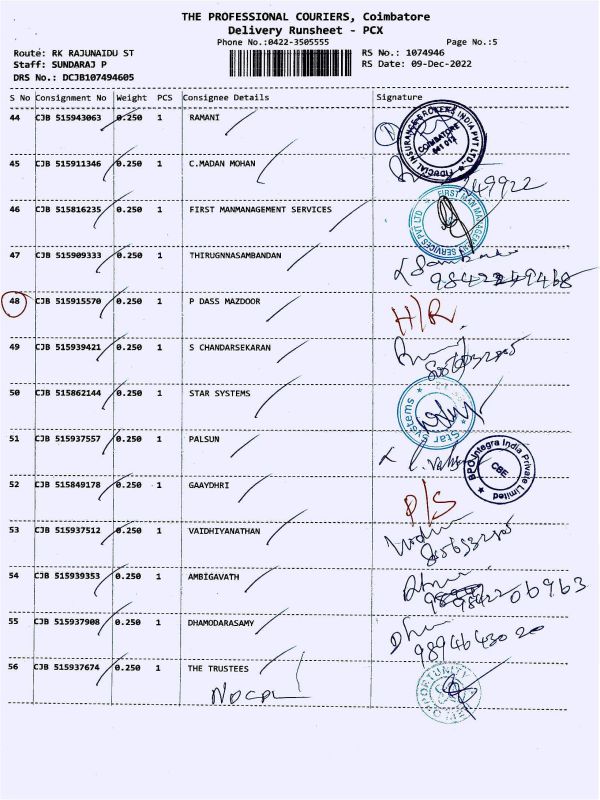 THE PROFESSIONAL COURIERS, Coimbatore
Delivery Runsheet - PCX
Phone No.:0422-3505555 Page No.:5
Route: RK RAJUNAIDU ST RS No.: 1074946
Staff: SUNDARAJ P RS Date: 09-Dec-2022
DRS No.: DCJB107494605
S No Consignment No Weight PCS Consignee Details Signature
44 CJB 515943063 0.250 1 RAMANI
FIDUCIAL INSURANCE BROKERS INDIA PVT LTD., COIMBATORE 641 011
45 CJB 515911346 0.250 1 C.MADAN MOHAN
46 CJB 515816235 0.250 1 FIRST MANMANAGEMENT SERVICES
FIRST MAN MANAGEMENT SERVICES PVT LTD
47 CJB 515909333 0.250 1 THIRUGNNASAMBANDAN
48 CJB 515915570 0.250 1 P DASS MAZDOOR H/R
49 CJB 515939421 0.250 1 S CHANDARSEKARAN
50 CJB 515862144 0.250 1 STAR SYSTEMS
Star Systems
51 CJB 515937557 0.250 1 PALSUN
BPO Integra India Private Limited CBE
52 CJB 515849178 0.250 1 GAAYDHRI D/S
53 CJB 515937512 0.250 1 VAIDHIYANATHAN
54 CJB 515939353 0.250 1 AMBIGAVATH
55 CJB 515937908 0.250 1 DHAMODARASAMY
9894643020
56 CJB 515937674 0.250 1 THE TRUSTEES